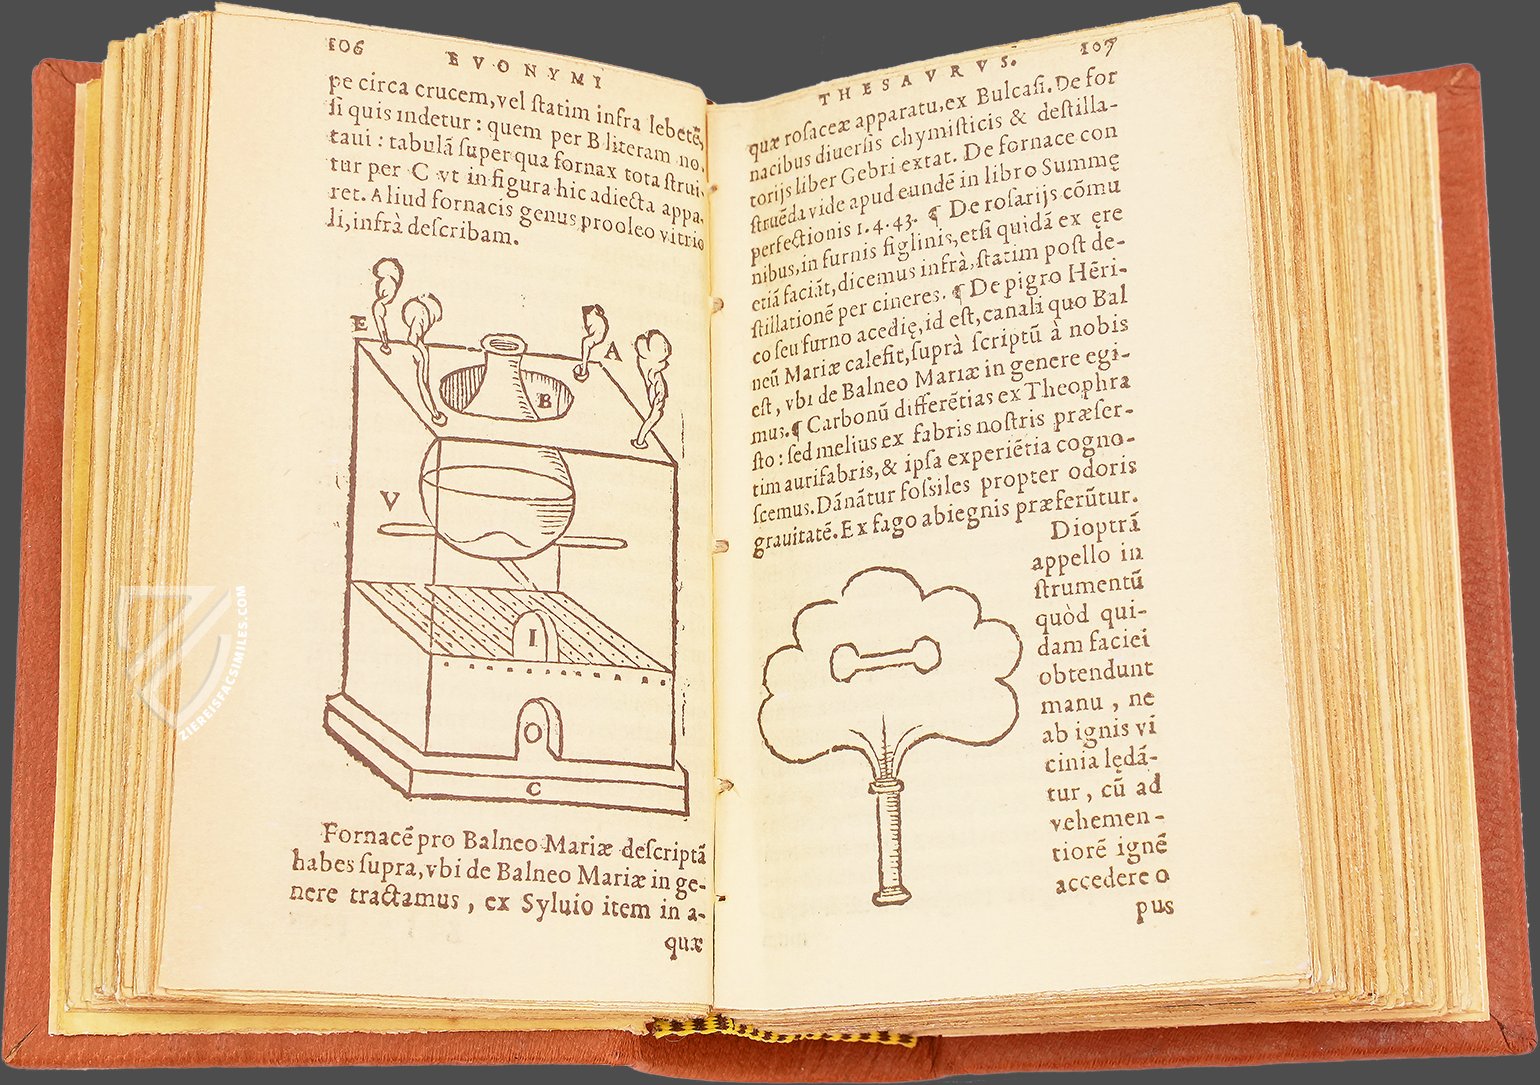 106
EVONYMI
pe circa crucem, vel ſtatim infra lebetē,
ſi quis indetur: quem per B literam no-
taui: tabulā ſuper qua fornax tota ſtrui-
tur per C vt in figura hic adiecta appa-
ret. Aliud fornacis genus pro oleo vitrio
li, infrà deſcribam.
E
A
B
V
I
O
C
Fornacē pro Balneo Mariæ deſcriptā
habes ſupra, vbi de Balneo Mariæ in ge-
nere tractamus, ex Syluio item in a-
quæ
THESAVRVS.
107
quæ roſaceæ apparatu, ex Bulcaſi. De for
nacibus diuerſis chymiſticis & deſtilla-
torijs liber Gebri extat. De fornace con
ſtruēda vide apud eundē in libro Summę
perfectionis 1.4.43. ¶ De roſarijs cōmu
nibus, in furnis figlinis, etſi quidā ex ęre
etiā faciāt, dicemus infrà, ſtatim poſt de-
ſtillationē per cineres. ¶ De pigro Hēri-
co ſeu furno acedię, id eſt, canali quo Bal
neū Mariæ calefit, ſuprà ſcriptū à nobis
eſt, vbi de Balneo Mariæ in genere egi-
mus. ¶ Carbonū differētias ex Theophra
ſto: ſed melius ex fabris noſtris præſer-
tim aurifabris, & ipſa experiētia cogno-
ſcemus. Dānātur foſſiles propter odoris
grauitatē. Ex fago abiegnis præferūtur.
Dioptrā
appello in
ſtrumentū
quòd qui-
dam faciei
obtendunt
manu, ne
ab ignis vi
cinia lędā-
tur, cū ad
vehemen-
tiorē ignē
accedere o
pus
ZIEREISFACSIMILES.COM